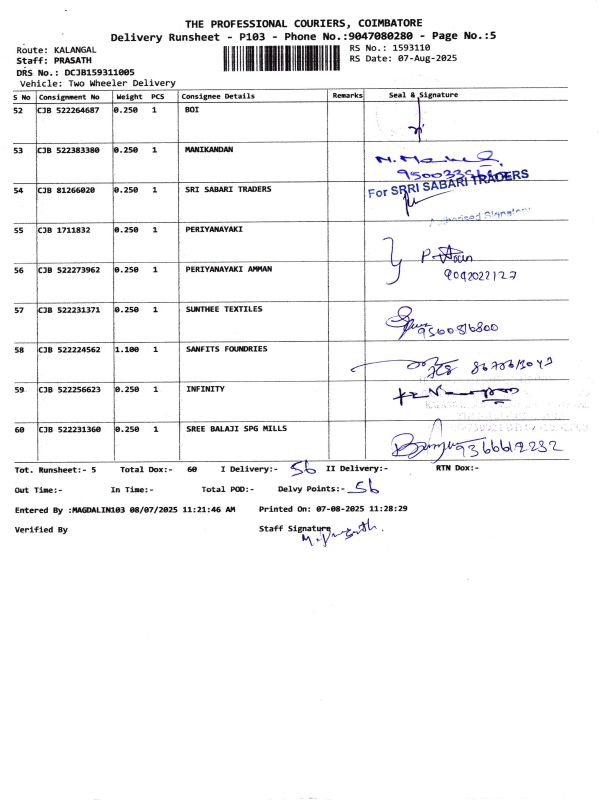 THE PROFESSIONAL COURIERS, COIMBATORE
Delivery Runsheet - P103 - Phone No.:9047080280 - Page No.:5
Route: KALANGAL
RS No.: 1593110
Staff: PRASATH
RS Date: 07-Aug-2025
DRS No.: DCJB159311005
Vehicle: Two Wheeler Delivery
S No Consignment No Weight PCS Consignee Details Remarks Seal & Signature
52 CJB 522264687 0.250 1 BOI
53 CJB 522383380 0.250 1 MANIKANDAN
54 CJB 81266020 0.250 1 SRI SABARI TRADERS
For SRRI SABARI TRADERS
Authorised Signatory
55 CJB 1711832 0.250 1 PERIYANAYAKI
56 CJB 522273962 0.250 1 PERIYANAYAKI AMMAN
9092022127
57 CJB 522231371 0.250 1 SUNTHEE TEXTILES
9500816800
58 CJB 522224562 1.100 1 SANFITS FOUNDRIES
59 CJB 522256623 0.250 1 INFINITY
60 CJB 522231360 0.250 1 SREE BALAJI SPG MILLS
9366612232
Tot. Runsheet:- 5 Total Dox:- 60 I Delivery:- 56 II Delivery:- RTN Dox:-
Out Time:- In Time:- Total POD:- Delvy Points:- 56
Entered By :MAGDALIN103 08/07/2025 11:21:46 AM Printed On: 07-08-2025 11:28:29
Verified By Staff Signature
M. Prasath.